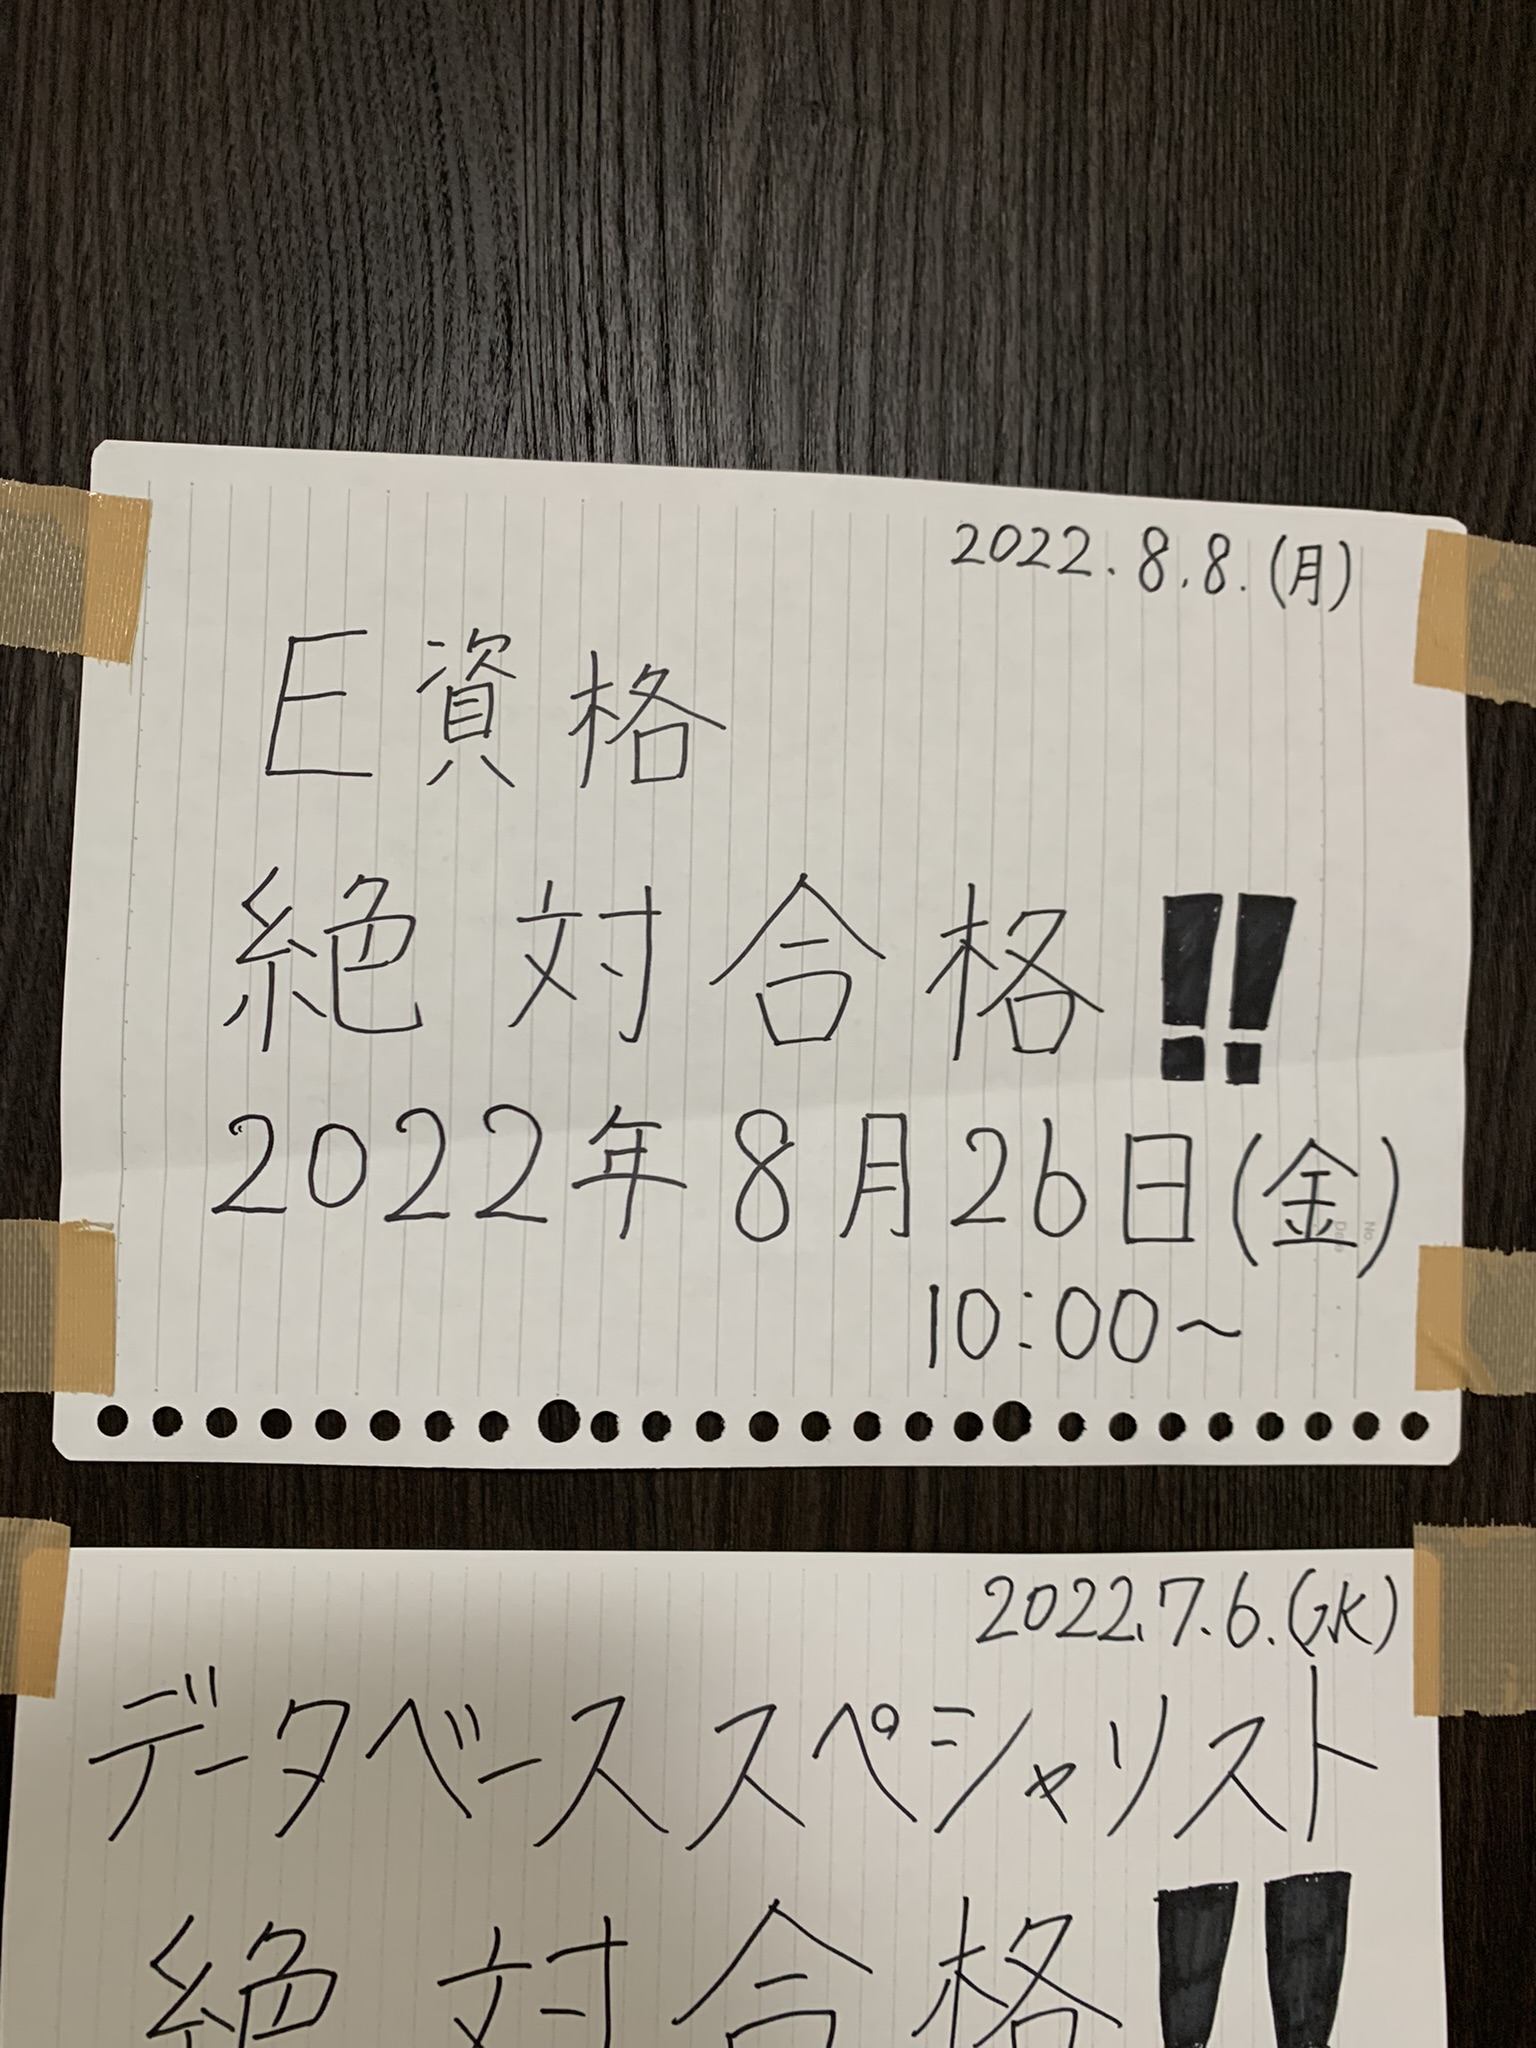 2022.8.8.(月)
E資格
絶対合格!!
2022年8月26日(金)
10:00～
2022.7.6.(水)
データベーススペシャリスト
絶対合格!!